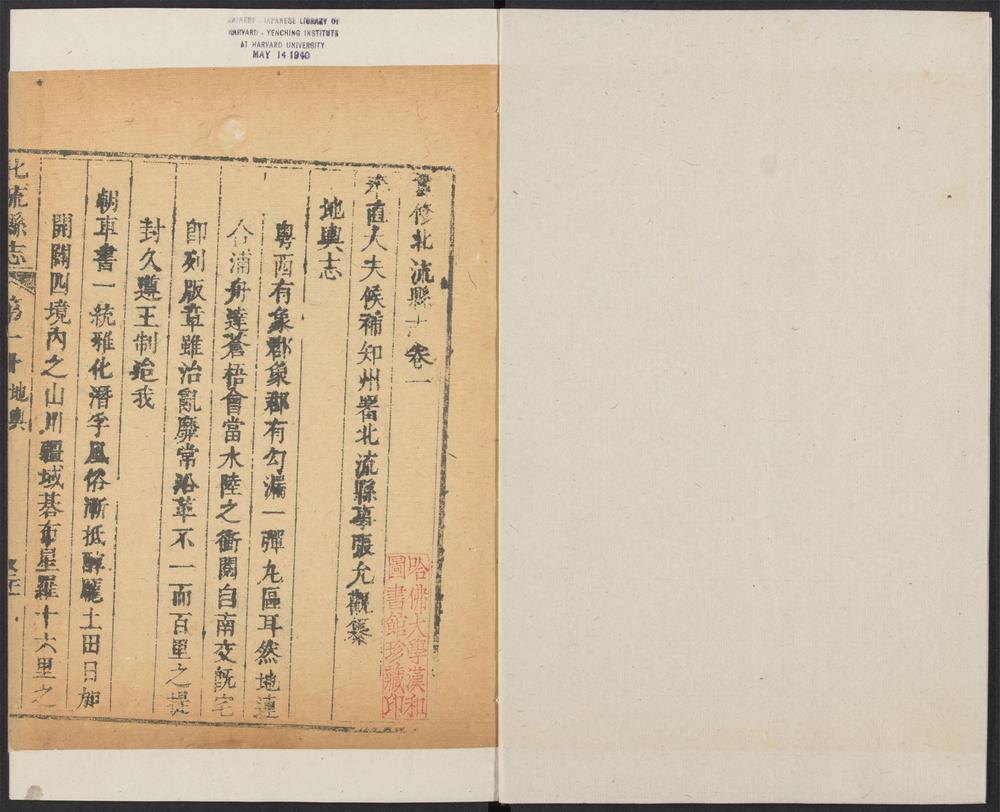 CHINESE - JAPANESE LIBRARY OF
HARVARD - YENCHING INSTITUTE
AT HARVARD UNIVERSITY
MAY 14 1940
重修北流縣志卷一
奉直大夫候補知州署北流縣事張允觀纂
地輿志
粤西有象郡象郡有勾漏一彈丸區耳然地連
合浦舟達蒼梧會當水陸之衝閱自南交旣宅
卽列版章雖治亂靡常沿革不一而百里之提
封久遵王制迨我
朝車書一統雅化潛孚風俗漸抵醇龐土田日加
開闢四境內之山川疆域碁布星羅十六里之
北流縣志
地輿
哈佛大學漢和
圖書館珍藏印